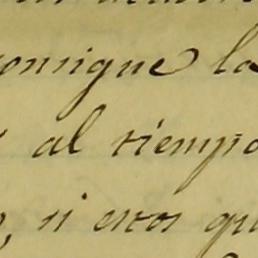 consigue la
al tiempo
si estos qu